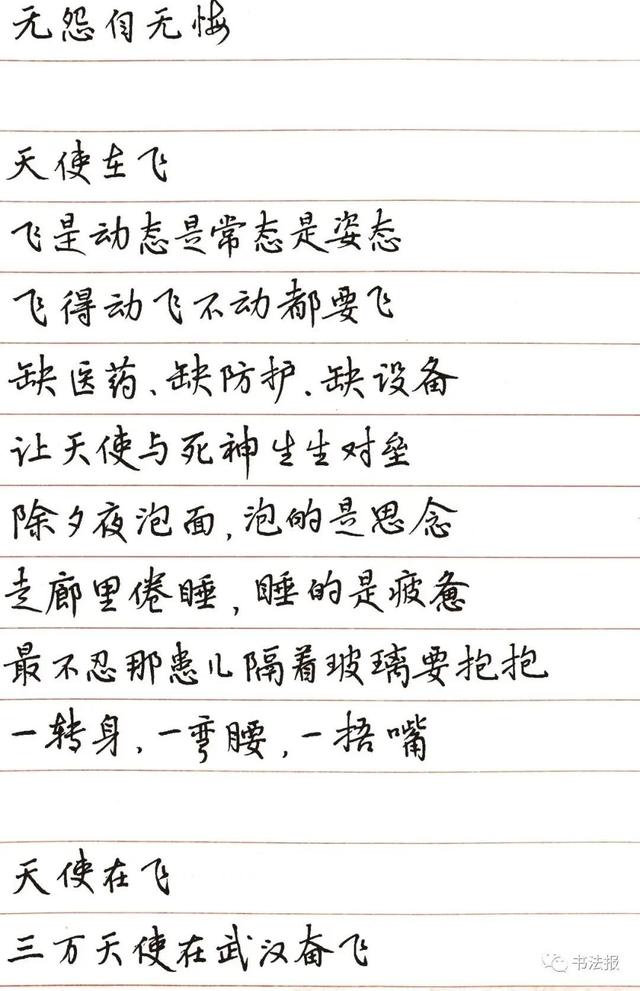 无怨自无悔
天使在飞
飞是动态是常态是姿态
飞得动飞不动都要飞
缺医药、缺防护、缺设备
让天使与死神生生对垒
除夕夜泡面，泡的是思念
走廊里倦睡，睡的是疲惫
最不忍那患儿隔着玻璃要抱抱
一转身、一弯腰，一捂嘴
天使在飞
三万天使在武汉奋飞
书法报